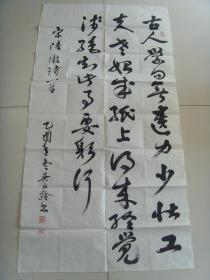 古人学问无遗力少壮工
夫老始成纸上得来终觉
浅绝知此事要躬行
宋陆游诗一首
乙酉年冬